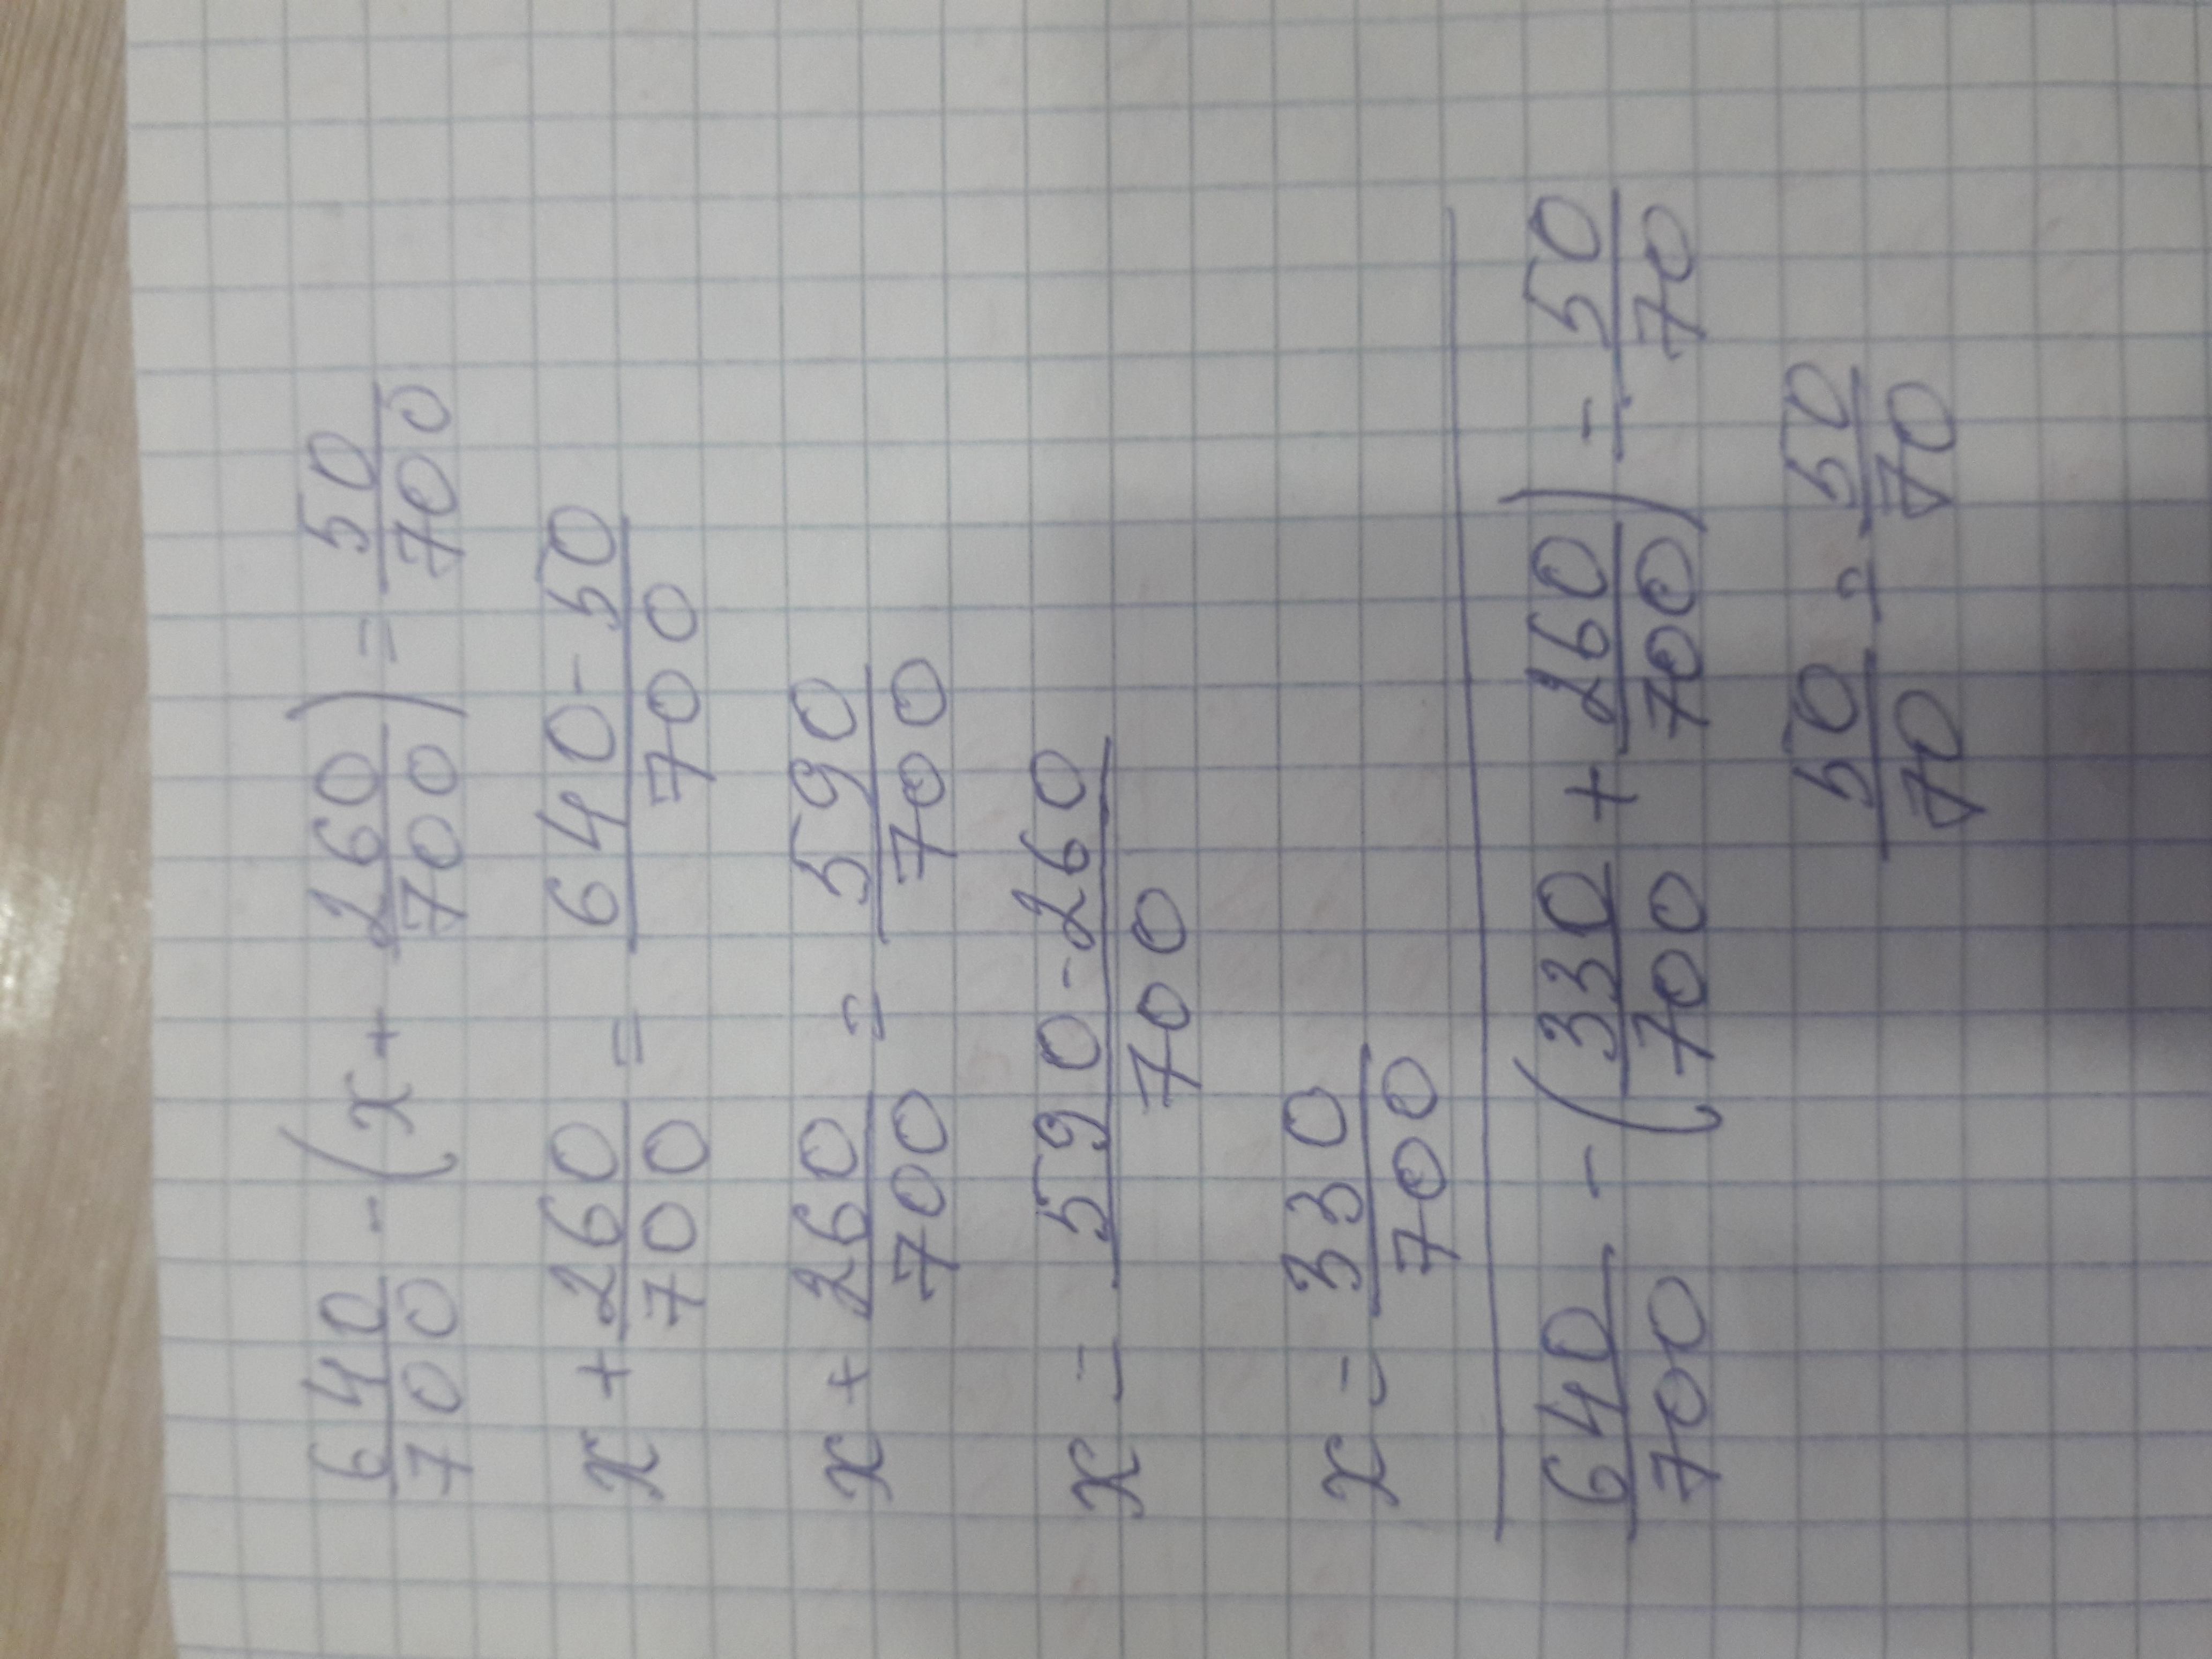 640/700 - (x + 260/700) = 50/700
x + 260/700 = 640-50/700
x + 260/700 = 590/700
x = 590-260/700
x = 330/700
640/700 - (330/700 + 260/700) = 50/70
50/70 = 50/70